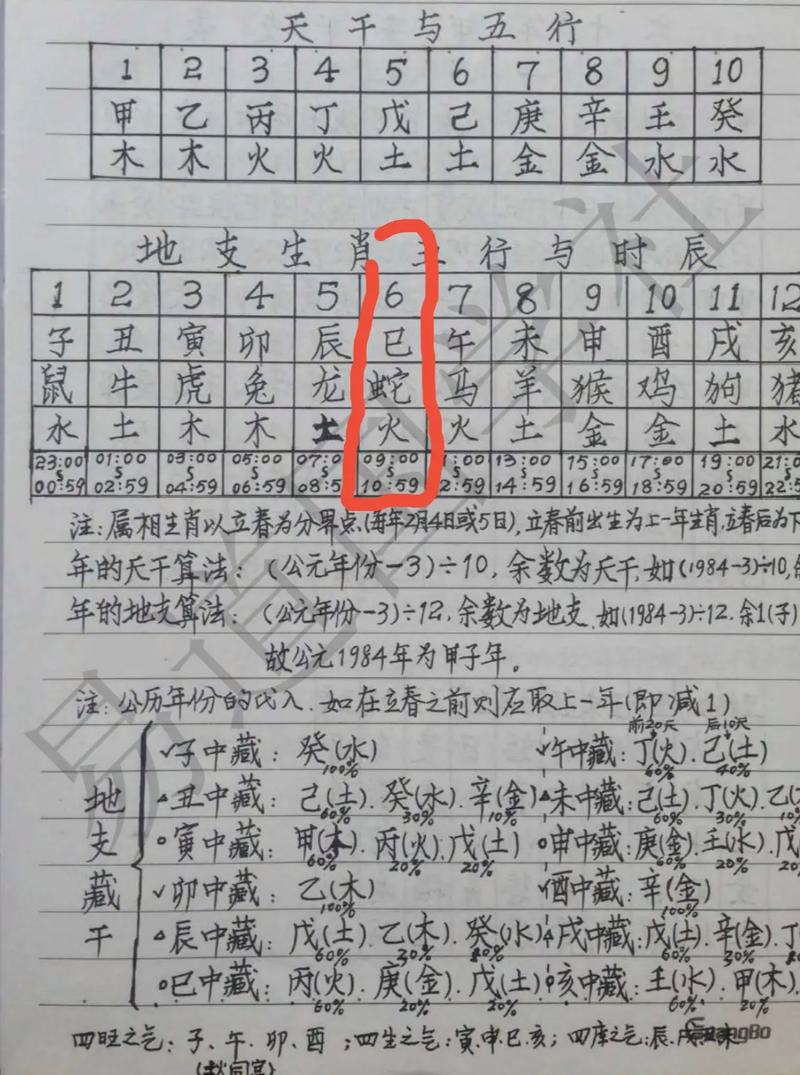 天干与五行
1 2 3 4 5 6 7 8 9 10
甲 乙 丙 丁 戊 己 庚 辛 壬 癸
木 木 火 火 土 土 金 金 水 水
地支生肖五行与时辰
1 2 3 4 5 6 7 8 9 10 11 12
子 丑 寅 卯 辰 巳 午 未 申 酉 戌 亥
鼠 牛 虎 兔 龙 蛇 马 羊 猴 鸡 狗 猪
水 土 木 木 土 火 火 土 金 金 土 水
23:00 01:00 03:00 05:00 07:0 09:00 1:00 13:00 15:00 17:00 19:00 21:0
00:59 02:59 04:59 06:59 08:5 10:59 2:59 14:59 16:59 18:59 20:59 22:5
注:属相生肖以立春为分界点(每年2月4日或5日),立春前出生为上一年生肖,立春后为下
年的天干算法:(公元年份-3)÷10,余数为天干,如(1984-3)÷10,
年的地支算法:(公元年份-3)÷12,余数为地支.如(1984-3)÷12.余1(子)
故公元1984年为甲子年。
注:公历年份的代入.如在立春之前则应取上一年(即减1)
前20天 后10天
地支藏干
✓子中藏:癸(水) ✓午中藏:丁(火).己(土)
100% 60% 40%
△丑中藏:己(土).癸(水).辛(金) △未中藏:己(土).丁(火).乙(
60% 30% 10% 60% 30% 10%
○寅中藏:甲(木).丙(火).戊(土) ○申中藏:庚(金).壬(水).戊
60% 20% 20% 60% 20% 20
✓卯中藏:乙(木) ✓酉中藏:辛(金)
100% 100%
△辰中藏:戊(土).乙(木).癸(水) △戌中藏:戊(土).辛(金).丁
60% 30% 60% 30%
○巳中藏:丙(火).庚(金).戊(土) ○亥中藏:壬(水).甲(木).
60% 20% 20% 60% 20%
四旺之气:子、午、卯、酉;四生之气:寅.申.巳.亥;四库之气:辰.戌.丑.未
易道国学社